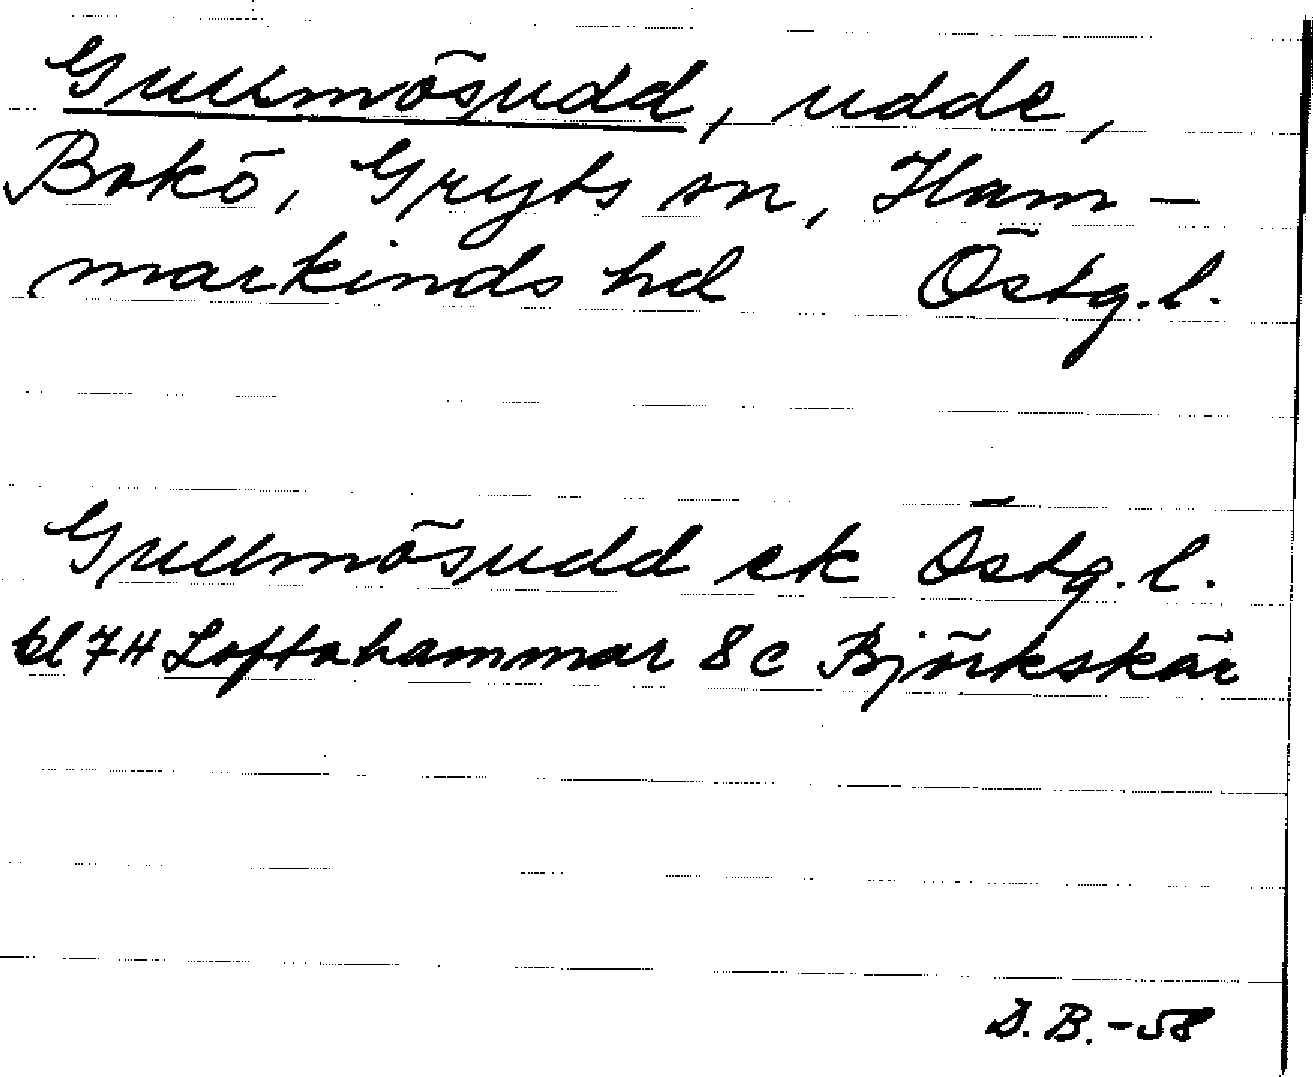 Gullmösudd, udde,
Bokö, Gryts sn, Ham-
markinds hd Östg.l.
Gullmösudd ek Östg.l.
bl 7H Loftahammar 8c Björkskär
D.B.-58